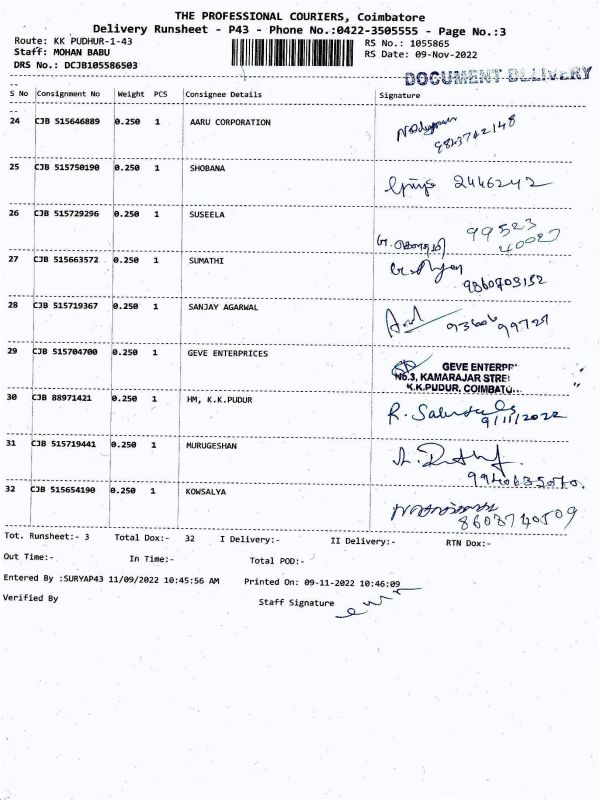 THE PROFESSIONAL COURIERS, Coimbatore
Delivery Runsheet - P43 - Phone No.:0422-3505555 - Page No.:3
Route: KK PUDHUR-1-43 RS No.: 1055865
Staff: MOHAN BABU RS Date: 09-Nov-2022
DRS No.: DCJB105586503
DOCUMENT DELIVERY
S No Consignment No Weight PCS Consignee Details Signature
24 CJB 515646889 0.250 1 AARU CORPORATION
9843742148
25 CJB 515750190 0.250 1 SHOBANA
2446242
26 CJB 515729296 0.250 1 SUSEELA
99523
40027
27 CJB 515663572 0.250 1 SUMATHI
9860703152
28 CJB 515719367 0.250 1 SANJAY AGARWAL
29 CJB 515704700 0.250 1 GEVE ENTERPRICES
GEVE ENTERPR
No.3, KAMARAJAR STRE
K.K.PUDUR, COIMBATO
30 CJB 88971421 0.250 1 HM, K.K.PUDUR
9/11/2022
31 CJB 515719441 0.250 1 MURUGESHAN
32 CJB 515654190 0.250 1 KOWSALYA
Tot. Runsheet:- 3 Total Dox:- 32 I Delivery:- II Delivery:- RTN Dox:-
Out Time:- In Time:- Total POD:-
Entered By :SURYAP43 11/09/2022 10:45:56 AM Printed On: 09-11-2022 10:46:09
Verified By Staff Signature